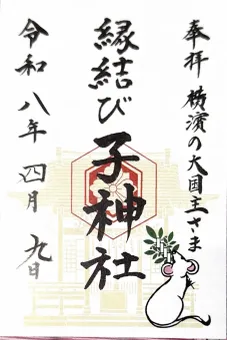 奉拝 横濱の大国主さま
縁結び 子神社
令和八年 四月 九日